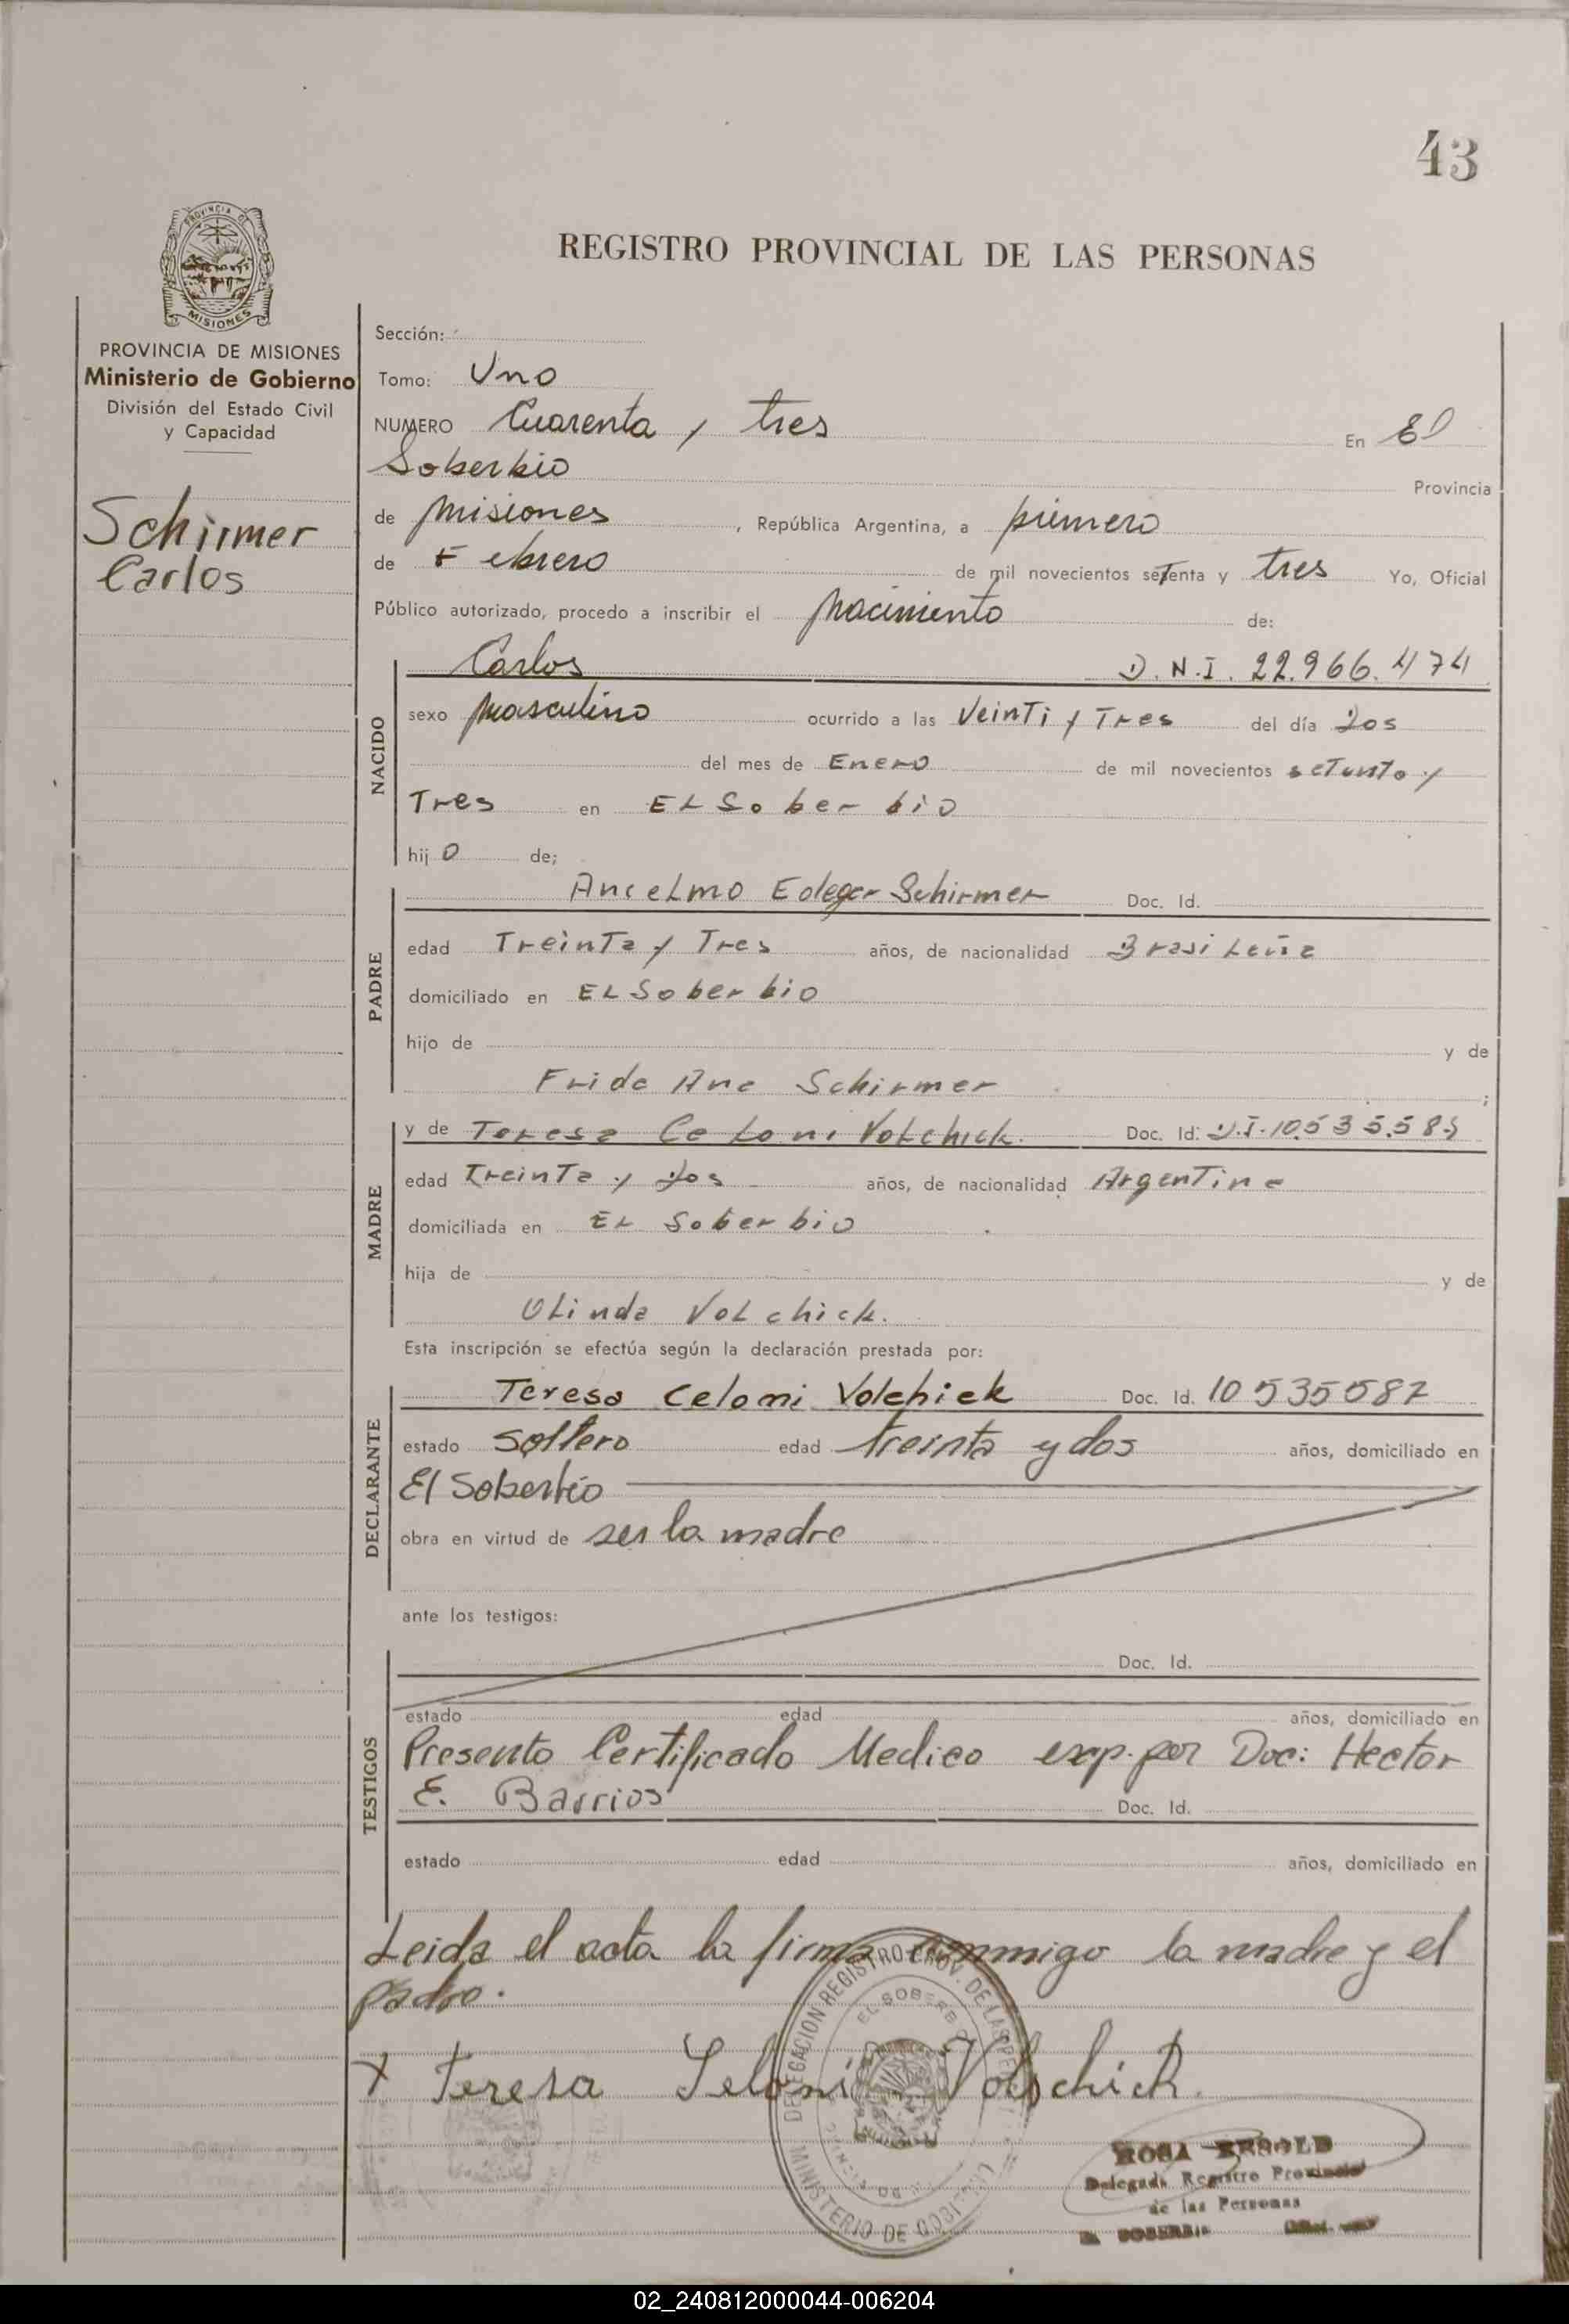 43
PROVINCIA DE
MISIONES
PROVINCIA DE MISIONES
Ministerio de Gobierno
División del Estado Civil
y Capacidad
Schirmer
Carlos
REGISTRO PROVINCIAL DE LAS PERSONAS
Sección:
Tomo: Uno
NUMERO Cuarenta y tres En El
Soberbio Provincia
de Misiones, República Argentina, a primero
de Febrero de mil novecientos setenta y tres Yo, Oficial
Público autorizado, procedo a inscribir el Nacimiento de:
NACIDO
Carlos D.N.I. 22.966.474
sexo Masculino ocurrido a las Veinti y Tres del día Dos
del mes de Enero de mil novecientos setenta y
Tres en El Soberbio
hijo de;
PADRE
Ancelmo Edegar Schirmer Doc. Id.
edad Treinta y Tres años, de nacionalidad Brasileña
domiciliado en El Soberbio
hijo de y de
Frida Ana Schirmer ;
MADRE
y de Teresa Celoni Volchick. Doc. Id: D.I. 10.535.582
edad Treinta y Dos años, de nacionalidad Argentina
domiciliada en El Soberbio
hija de y de
Olinda Volchick.
Esta inscripción se efectúa según la declaración prestada por:
DECLARANTE
Teresa Celoni Volchick Doc. Id. 10535582
estado soltero edad treinta y dos años, domiciliado en
El Soberbio
obra en virtud de ser la madre
ante los testigos:
TESTIGOS
Doc. Id.
estado edad años, domiciliado en
Presento Certificado Medico exp. por Doc: Hector
E. Barrios Doc. Id.
estado edad años, domiciliado en
Leida el acta la firma conmigo la madre y el
padre.
x Teresa Seloni Volschick.
DELEGACION REGISTRO PROV. DE LAS PERS.
EL SOBERBIO
MINISTERIO DE GOBIERNO
ROSA
Delegada Registro Provincial
de las Personas
EL SOBERBIO
02_240812000044-006204